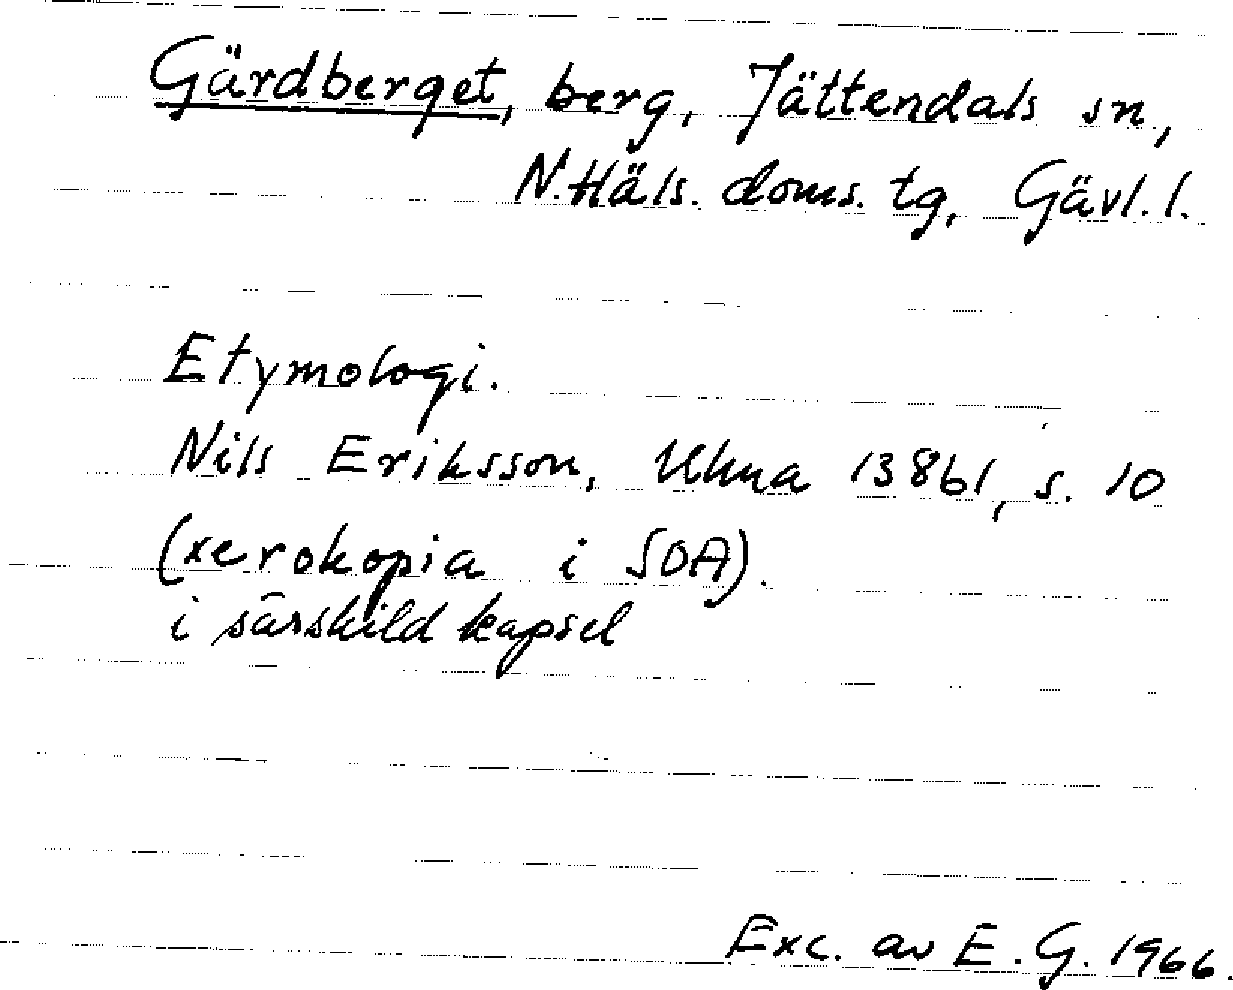 Gärdberget, berg, Jättendals sn,
N. Häls. doms. tg, Gävl. l.
Etymologi.
Nils Eriksson, Ukna 13861, s. 10
(xerokopia i SOA).
i särskild kapsel
Exc. av E. G. 1966.